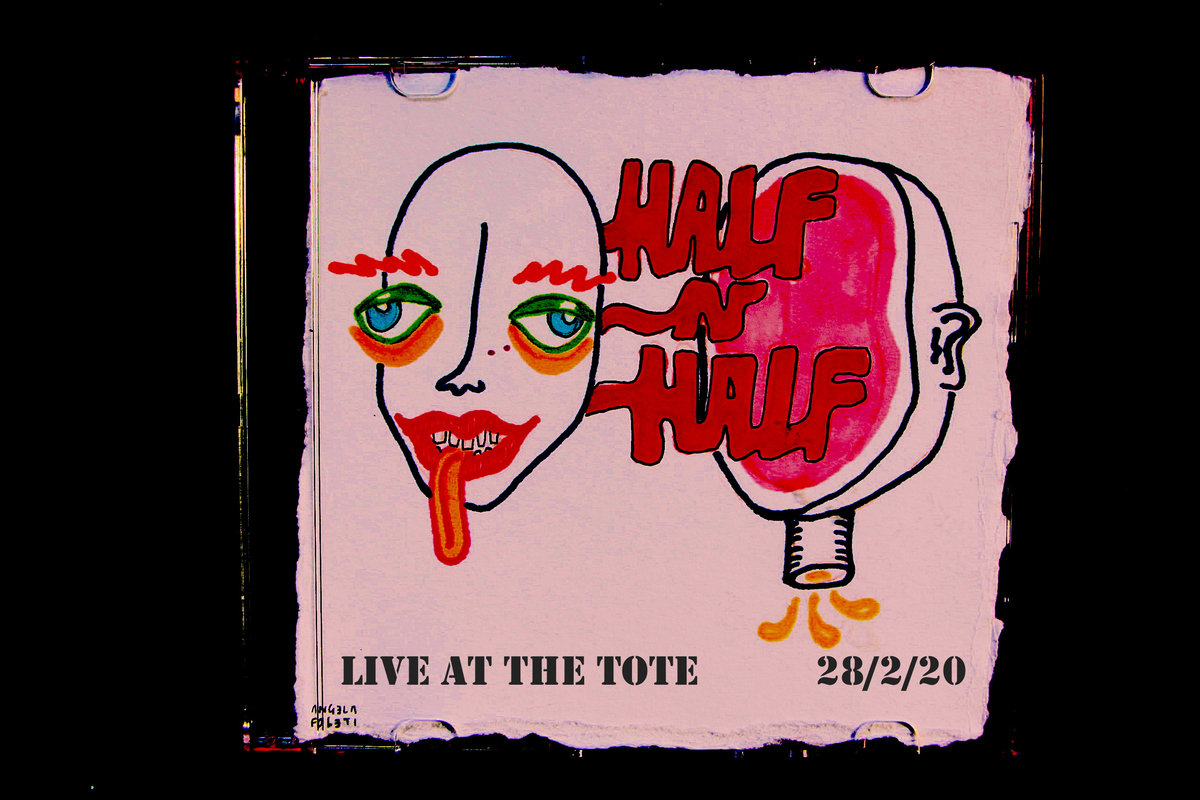 HALF
N
HALF
LIVE AT THE TOTE 28/2/20